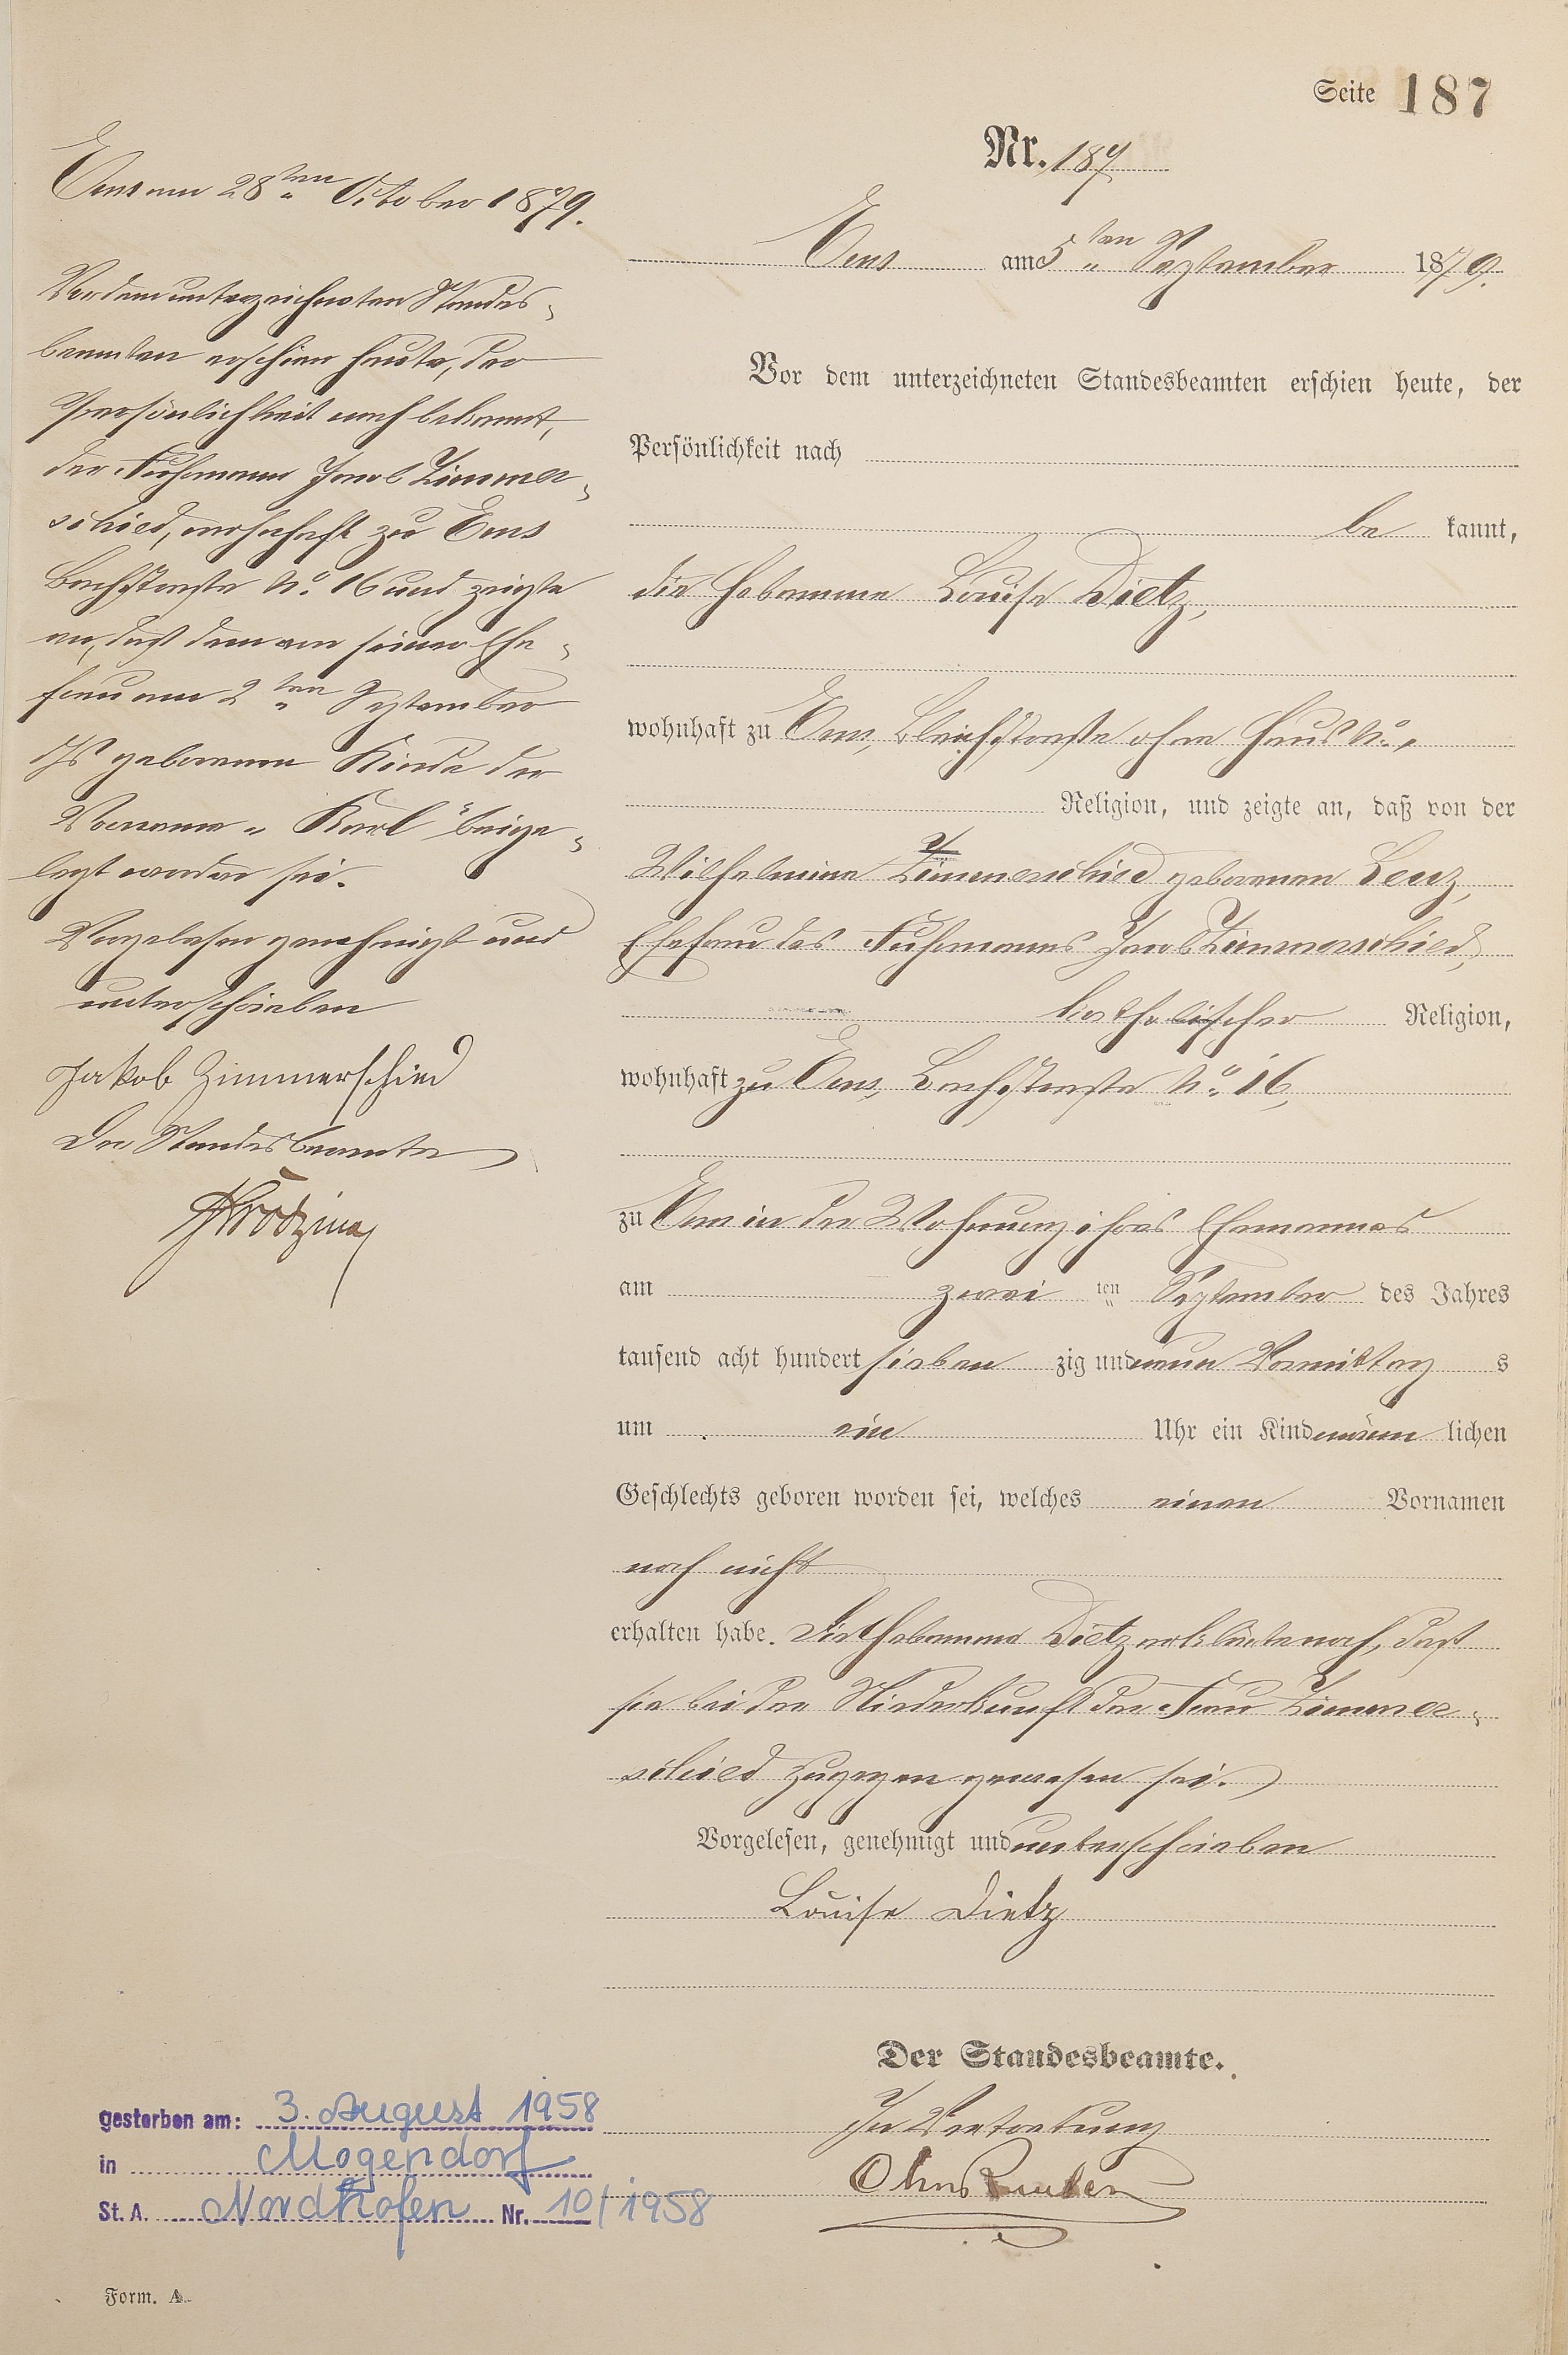 Seite 187
Nr. 187
Ems am 5ten September 1879.
Vor dem unterzeichneten Standesbeamten erschien heute, der
Persönlichkeit nach
be kannt,
die Hebamme Louise Dietz,
wohnhaft zu Ems, Bleichstraße ohne Haus No.,
Religion, und zeigte an, daß von der
Wilhelmine Zimmerschied geborenen Lenz,
Ehefrau des Fuhrmanns Jacob Zimmerschied,
katholischer Religion,
wohnhaft zu Ems, Bachstraße No. 16,
zu Ems in der Wohnung ihres Ehemannes
am zwei ten September des Jahres
tausend acht hundert sieben zig und neun Vormittag s
um ein Uhr ein Kind männ lichen
Geschlechts geboren worden sei, welches einen Vornamen
noch nicht
erhalten habe. Die Hebamme Dietz erklärte noch, daß
sie bei der Niederkunft der Frau Zimmer-
schied zugegen gewesen sei.
Vorgelesen, genehmigt und unterschrieben
Louise Dietz
Der Standesbeamte.
In Vertretung
Ems am 28ten October 1879.
Vor dem unterzeichneten Standes-
beamten erschien heute, der
Persönlichkeit nach bekannt,
der Fuhrmann Jacob Zimmer-
schied, wohnhaft zu Ems
Bachstraße No. 16 und zeigte
an, daß dem von seiner Ehe-
frau am 2ten September
geborenen Kinde der
Vorname „Karl" beige-
legt worden sei.
Vorgelesen genehmigt und
unterschrieben
Jakob Zimmerschied
Der Standesbeamte
gestorben am: 3. August 1958
in Mogendorf
St. A. Nordhofen Nr. 10/1958
Form. A.